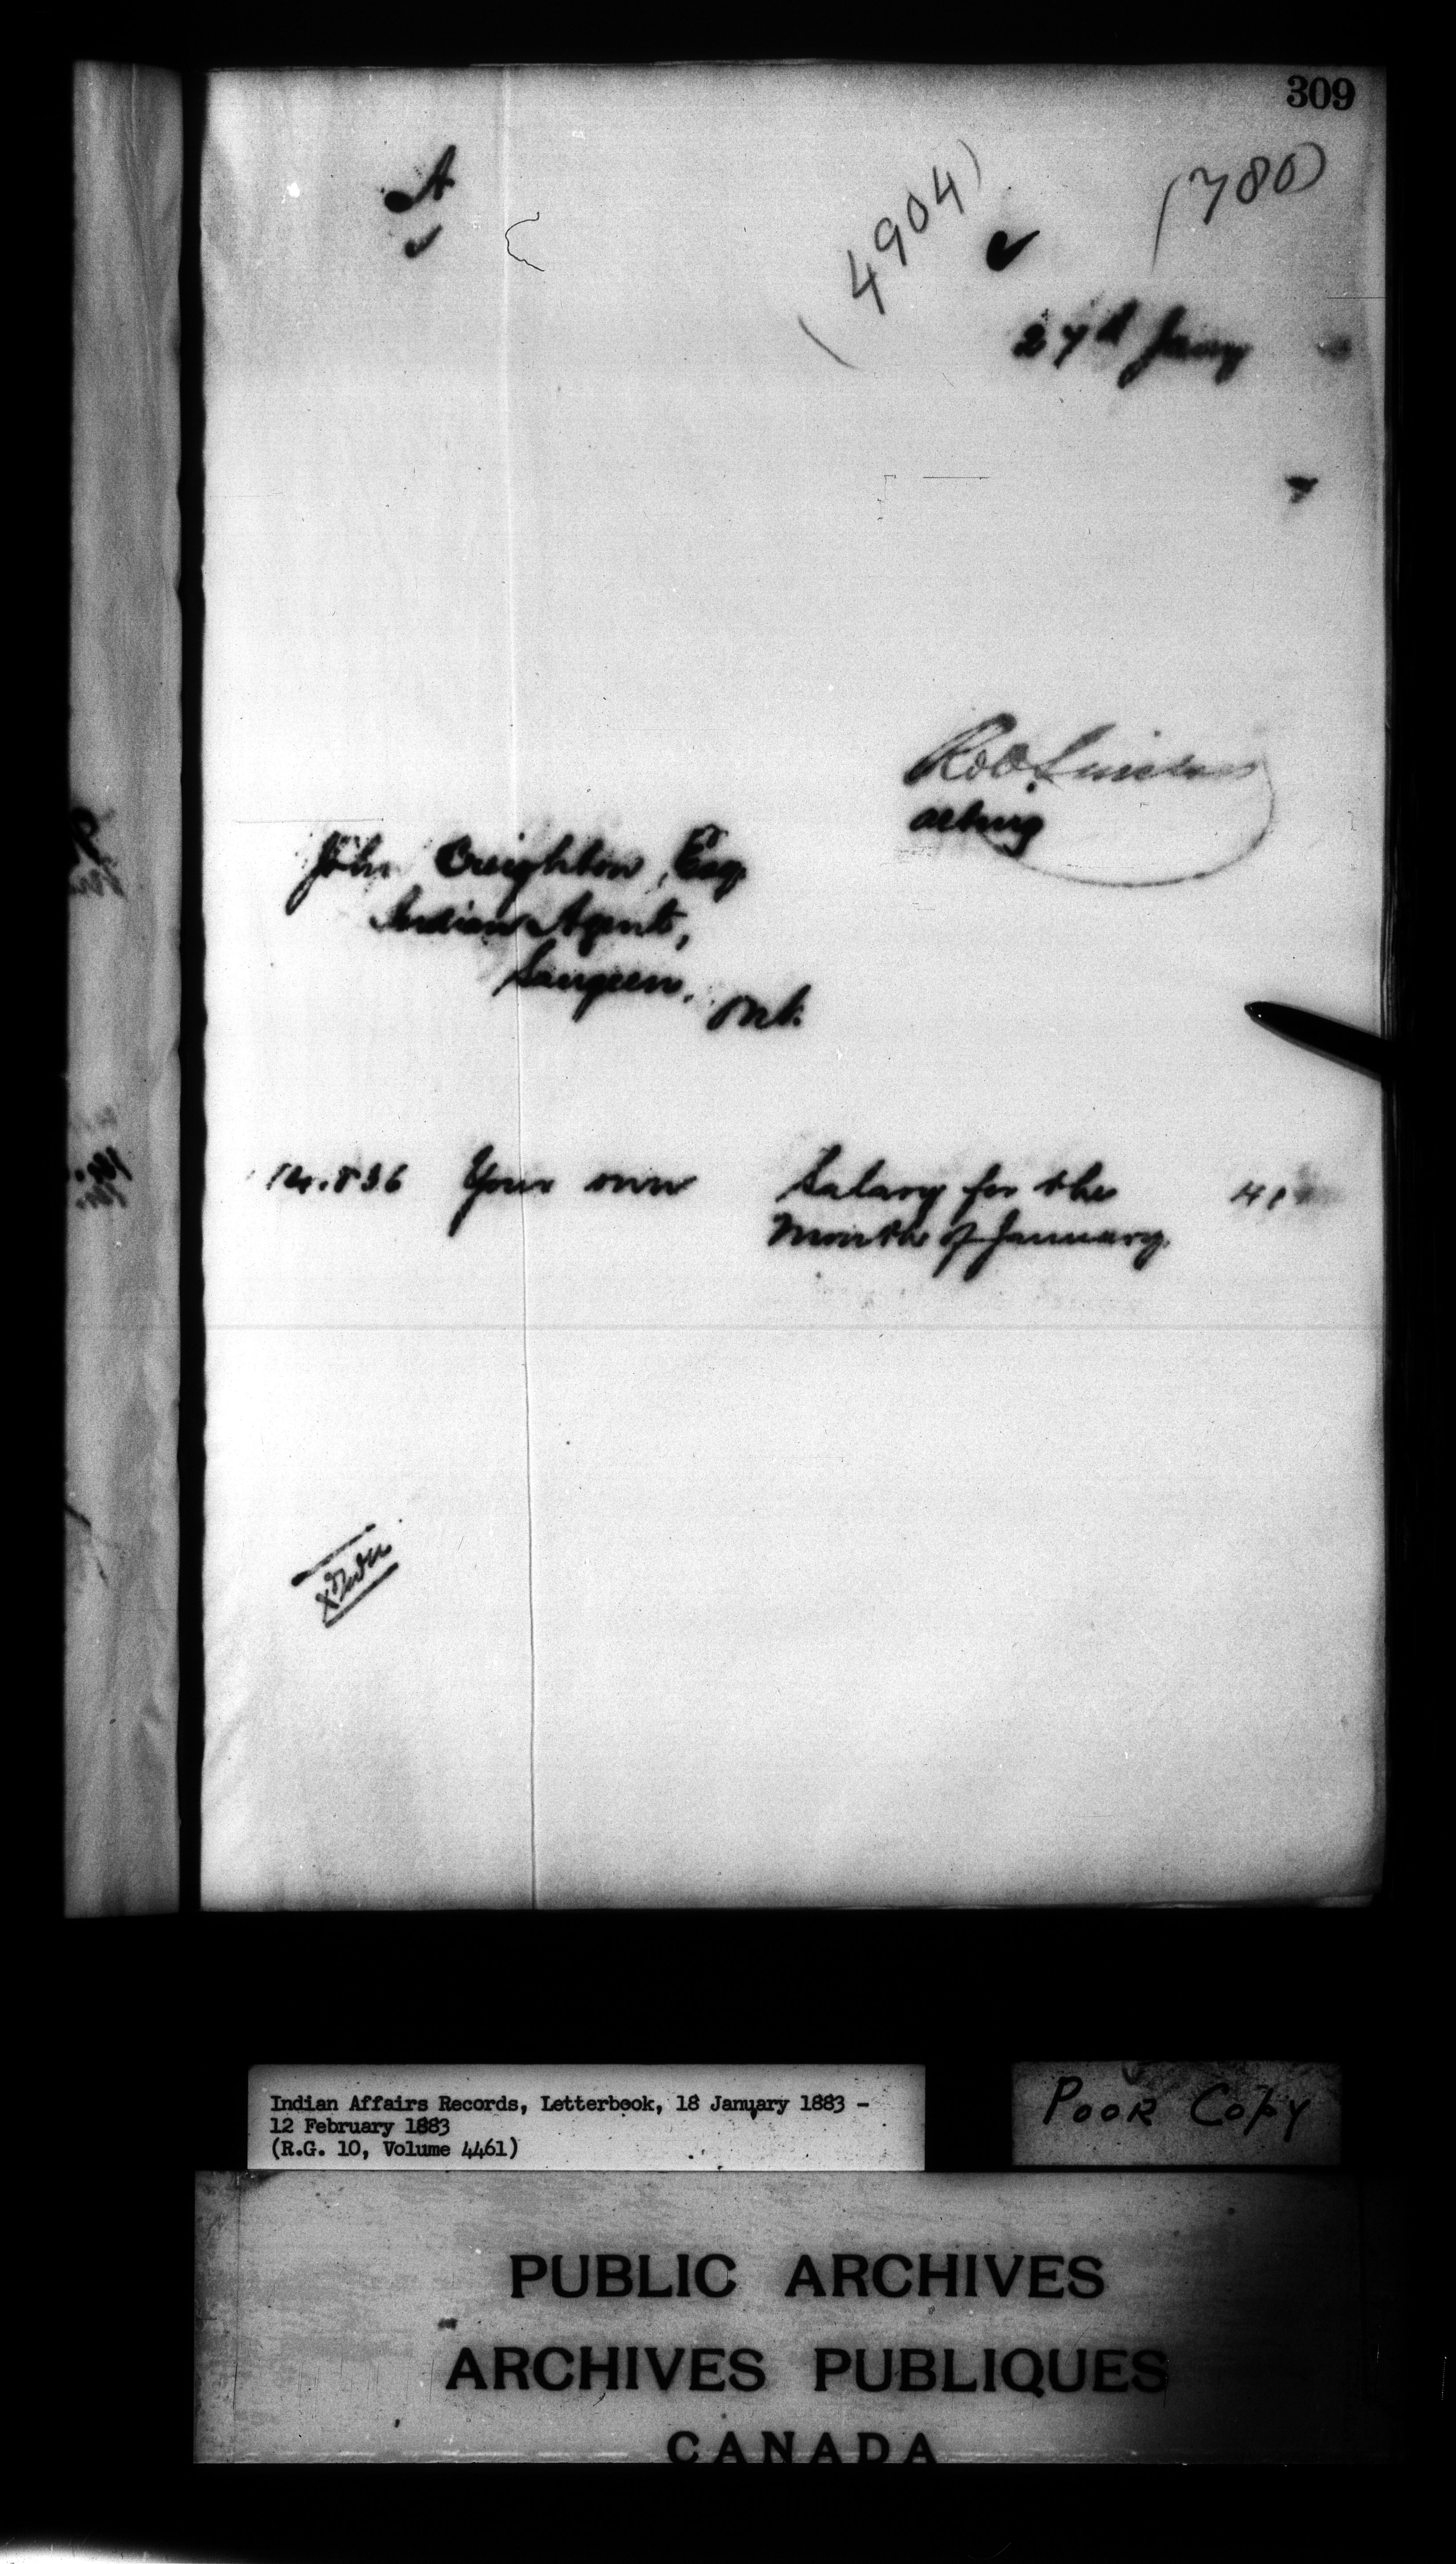 309
A
(4904)
(780)
27th Jany
Rob Sinclair
acting
John Creighton, Esq
Indian Agent,
Saugeen,
Ont.
No. 836 Your own Salary for the
Month of January.
Indian Affairs Records, Letterbook, 18 January 1883 -
12 February 1883
(R.G. 10, Volume 4461)
POOR COPY
PUBLIC ARCHIVES
ARCHIVES PUBLIQUES
CANADA